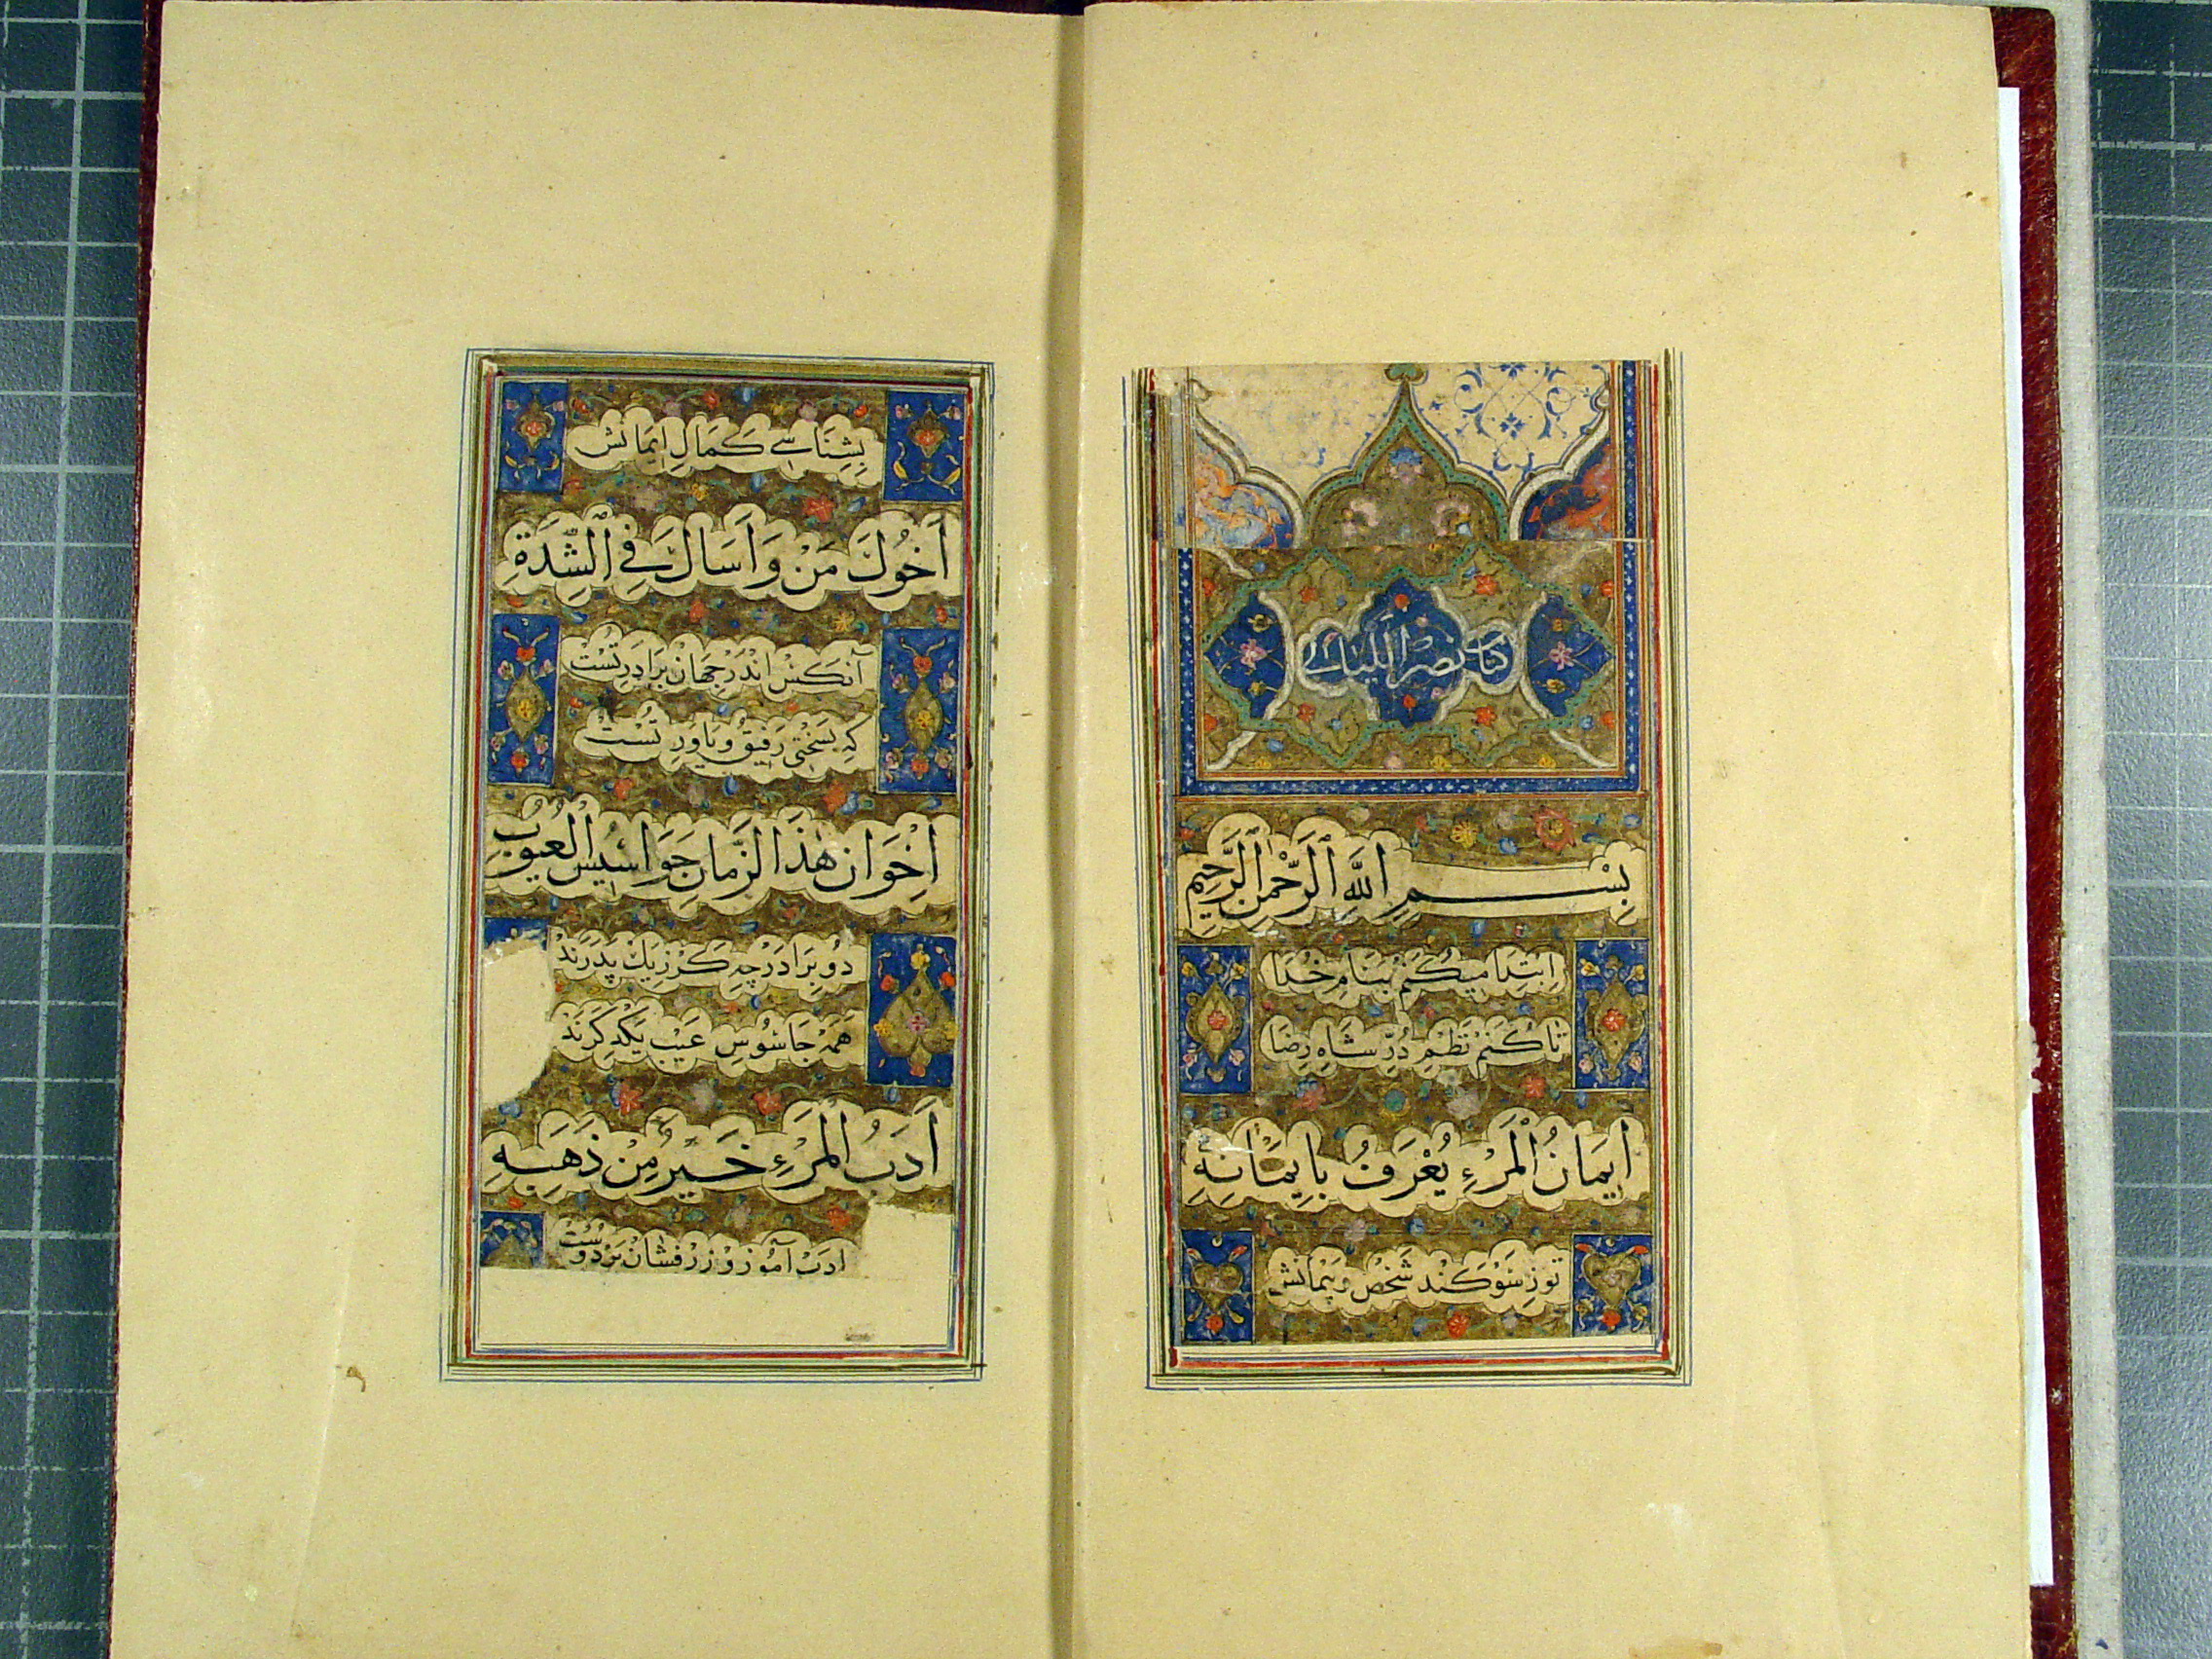 كتاب نصر الليالي
بِسْمِ اللَّهِ الرَّحْمٰنِ الرَّحِيمِ
اِبْتِدَا میکُنَمْ بِنَامِ خُدَا
تا کُنَمْ نَظْمِ دُرِّ شَاهِ رِضَا
اِيمَانُ الْمَرْءِ يُعْرَفُ بِاَيْمَانِهِ
تو زِ سَوْکَنْد شَخْص و پَیْمَانَش
بِشِنَاسے کَمَالِ اِیمَانَش
اَخُوكَ مَنْ وَاَسَاكَ فِي الشِّدَّةِ
آنکَسْ اَنْدَرْ جِهَانْ بَرَادَرِ تُسْتْ
کِه بِسَخْتی رَفِیقُ و یَاوَرِ تُسْتْ
اِخْوَانُ هٰذَا الزَّمَانِ جَوَاسِيسُ الْعُيُوبِ
دُو بَرَادَرْ چِه کَرْ زِیكْ پِدَرَنْد
هَمَه جَاسُوسِ عَیْبِ یَکْدِکَرَنْد
اَدَبُ الْمَرْءِ خَيْرٌ مِنْ ذَهَبِهِ
ادَبْ آمُوز و زَرْ فشَانْ بَرْ دُوسْتْ